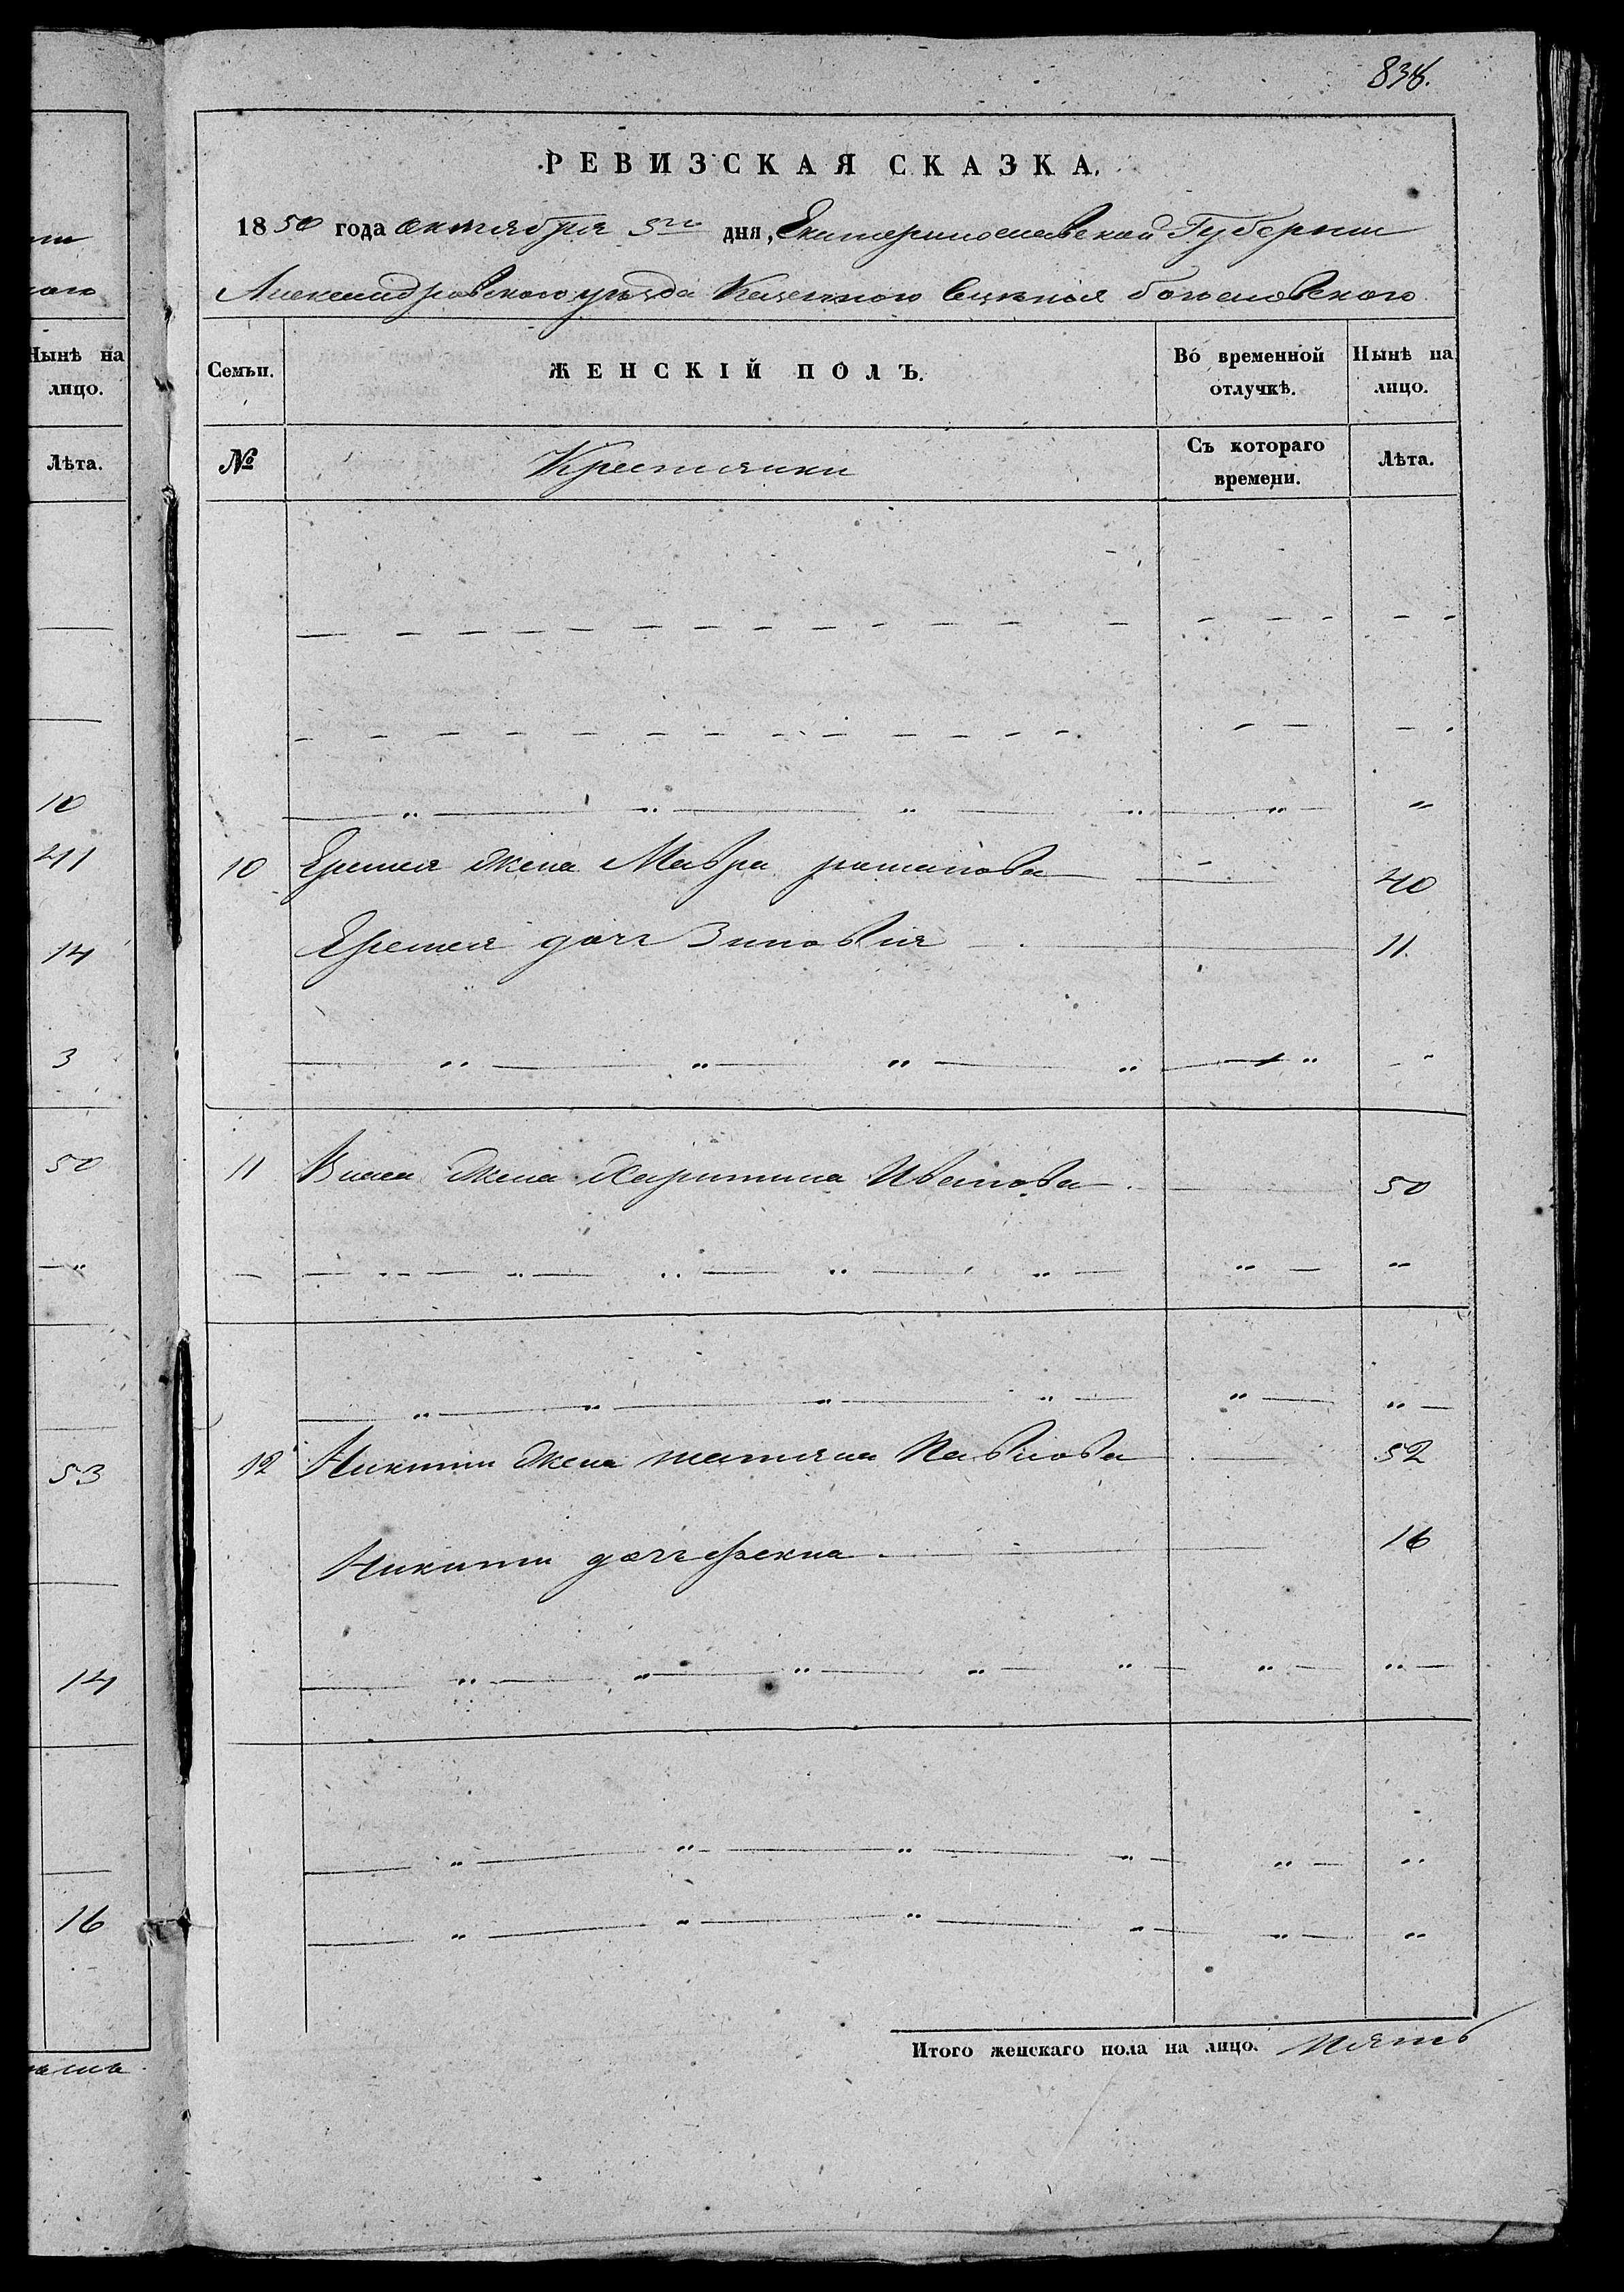 нѣ на
лицо.
Лѣта.
10
41
14
3
50
53
14
16
838.
РЕВИЗСКАЯ СКАЗКА.
1850 года октября 5го дня, Екатеринославской Губернии
Александровского уезда Казенного селения богословского
Семьи. ЖЕНСКІЙ ПОЛЪ. Во временной отлучкѣ. Нынѣ на лицо.
№ Крестянки Съ котораго времени. Лѣта.
10 Еремея жена Мавра 40
Еремея дочь Зиновия 11.
11 Власа жена Харитина Иванова 50
12 Никиты жена татияна Павлова 52
Никиты дочь фекла 16
Итого женскаго пола на лицо. Пять